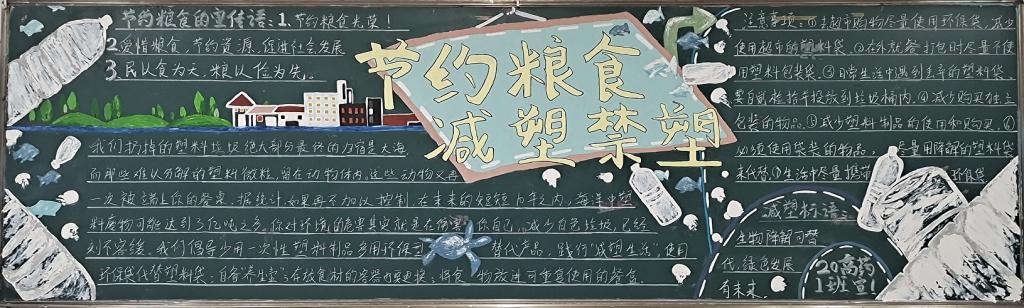 节约粮食的宣传语:1、节约粮食光荣!
2.爱惜粮食,节约资源,促进社会发展
3.民以食为天,粮以俭为先。
节约粮食
减塑禁塑
我们扔掉的塑料垃圾绝大部分最终的归宿是大海
而那些难以分解的塑料微粒,留在动物体内,这些动物又再
一次被端上你的餐桌,据统计如果再不加以控制,在未来的短短10年之内,海洋中塑
料废物可能达到3亿吨之多。你对环境的危害其实就是在伤害你自己,减少白色垃圾,已经
刻不容缓,我们倡导少用一次性塑料制品多用环保 替代产品,践行"减塑生活"使用
环保袋代替塑料袋,自备 存放食材的容器也要更换,将食物放进可重复使用的餐盒
注意事项:①去超市购物尽量使用环保袋,减少
使用超市的塑料袋。②在外就餐打包时尽量不使
用塑料包装袋。③日常生活中遇到丢弃的塑料袋,
要自觉捡拾并投放到垃圾桶内。④减少购买独立
包装的物品。⑤减少塑料制品的使用和购买。⑥
必须使用袋装的物品,尽量用降解的塑料袋
来代替。⑦生活中尽量携带 环保袋
减塑标语:
生物降解可替
代,绿色发展
有未来。
20高药
1班宣!